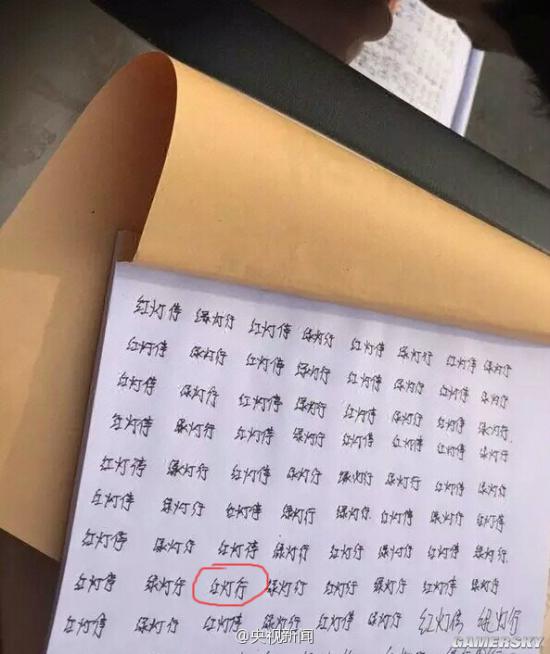 红灯停 绿灯行 红灯停 绿灯行 红灯停 绿灯行 红灯停 绿灯行
红灯停 绿灯行 红灯停 绿灯行 红灯停 绿灯行 红灯停 绿灯行
红灯停 绿灯行 红灯停 绿灯行 红灯停 绿灯行 红灯停 绿灯行
红灯停 绿灯行 红灯停 绿灯行 红灯停 绿灯行 红灯停 绿灯行
红灯停 绿灯行 红灯停 绿灯行 绿灯行 绿灯行 红灯停 绿灯行
红灯停 绿灯行 红灯停 绿灯行 绿灯行 红灯停 绿灯行
红灯停 绿灯行 红灯停 绿灯行 红灯行 绿灯行 红灯停 绿灯行
红灯停 绿灯行 红灯行 绿灯行 红灯行 绿灯行 红灯停 绿灯行
红灯停 绿灯行 红灯停 绿灯行 绿灯行 红灯停 绿灯行
@央视新闻
GAMERSKY